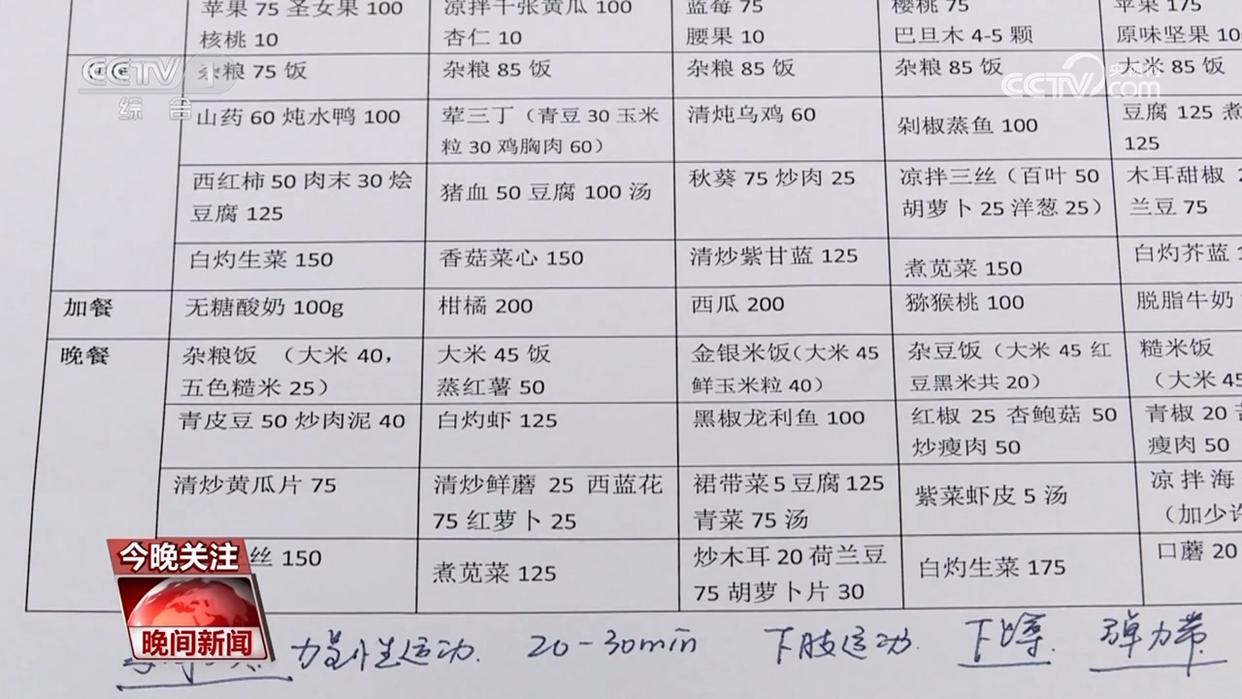 苹果 75 圣女果 100
核桃 10
凉拌千张黄瓜 100
杏仁 10
蓝莓 75
腰果 10
樱桃 75
巴旦木 4-5 颗
苹果 175
原味坚果 10
CCTV 1
综合
央视网
CCTV.com
杂粮 75 饭
杂粮 85 饭
杂粮 85 饭
杂粮 85 饭
大米 85 饭
山药 60 炖水鸭 100
荤三丁（青豆 30 玉米
粒 30 鸡胸肉 60）
清炖乌鸡 60
剁椒蒸鱼 100
豆腐 125 煮
125
西红柿 50 肉末 30 烩
豆腐 125
猪血 50 豆腐 100 汤
秋葵 75 炒肉 25
凉拌三丝（百叶 50
胡萝卜 25 洋葱 25）
木耳甜椒
兰豆 75
白灼生菜 150
香菇菜心 150
清炒紫甘蓝 125
煮苋菜 150
白灼芥蓝
加餐
无糖酸奶 100g
柑橘 200
西瓜 200
猕猴桃 100
脱脂牛奶
晚餐
杂粮饭 （大米 40，
五色糙米 25）
大米 45 饭
蒸红薯 50
金银米饭（大米 45
鲜玉米粒 40）
杂豆饭（大米 45 红
豆黑米共 20）
糙米饭
（大米 45
青皮豆 50 炒肉泥 40
白灼虾 125
黑椒龙利鱼 100
红椒 25 杏鲍菇 50
炒瘦肉 50
青椒 20
瘦肉 50
清炒黄瓜片 75
清炒鲜蘑 25 西蓝花
75 红萝卜 25
裙带菜 5 豆腐 125
青菜 75 汤
紫菜虾皮 5 汤
凉拌海
（加少许
丝 150
煮苋菜 125
炒木耳 20 荷兰豆
75 胡萝卜片 30
白灼生菜 175
口蘑 20
今晚关注
晚间新闻
力量性运动. 20-30min 下肢运动. 下蹲. 弹力带.